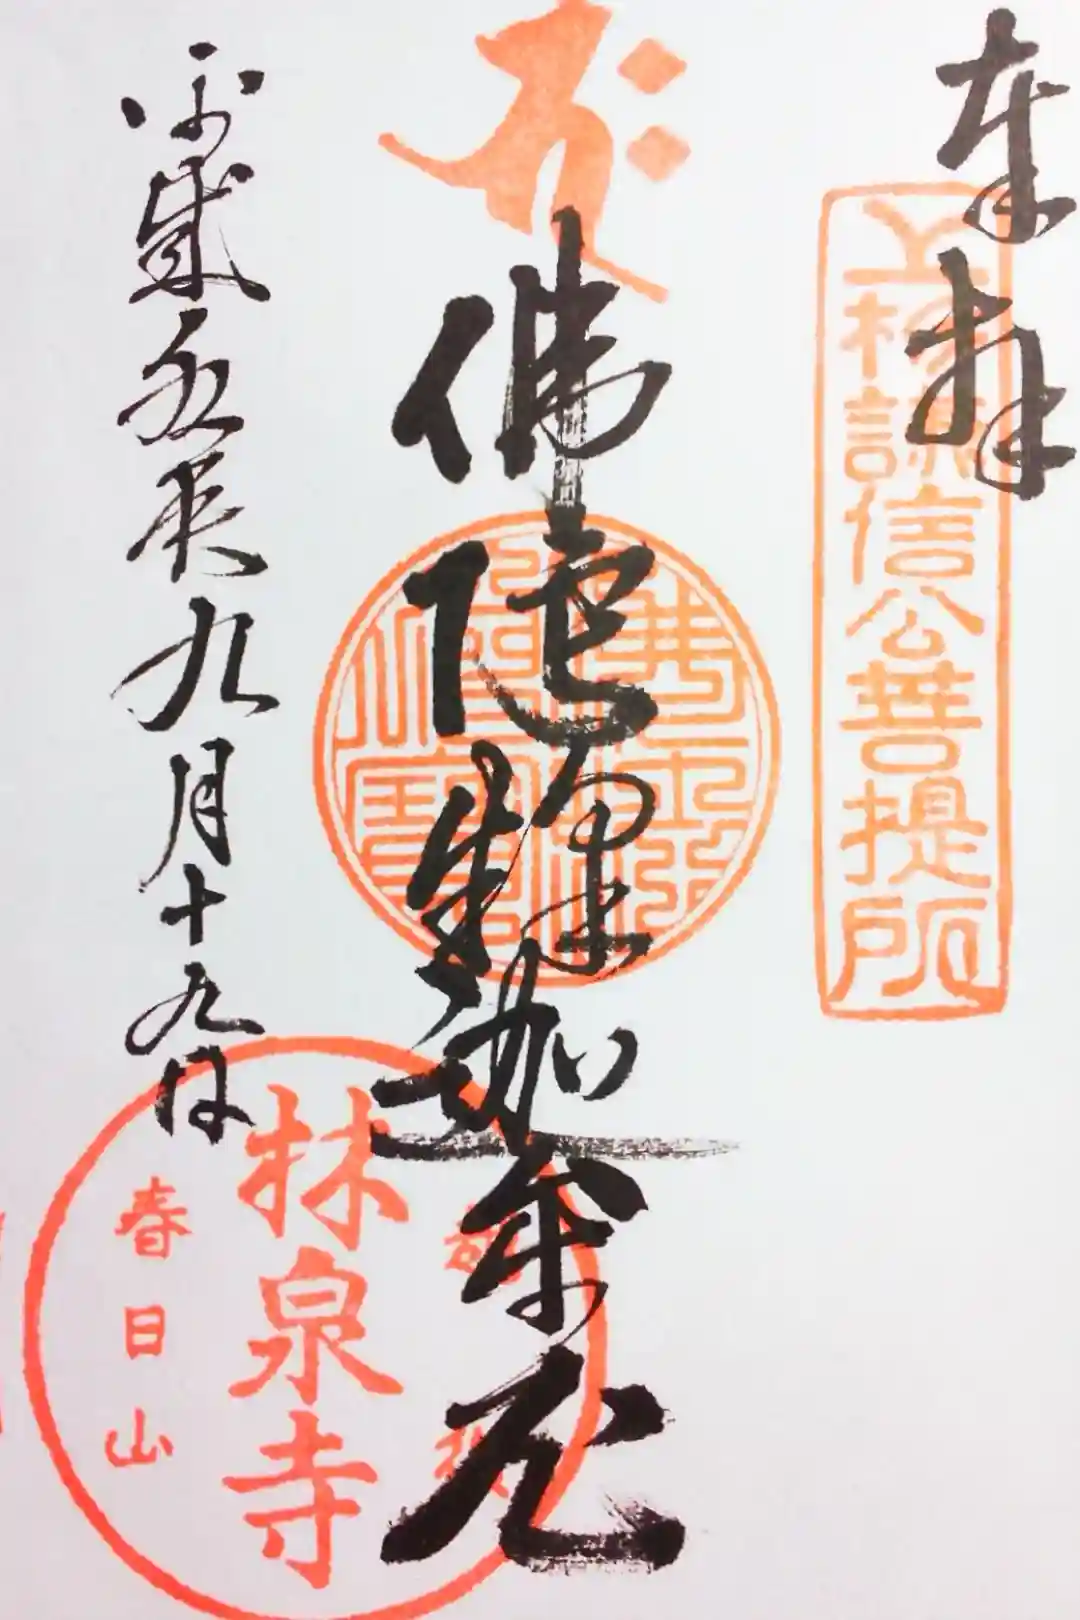 奉拝
上杉謙信公菩提所
佛陀釋迦牟尼
九月十九日
越後
林泉寺
春日山